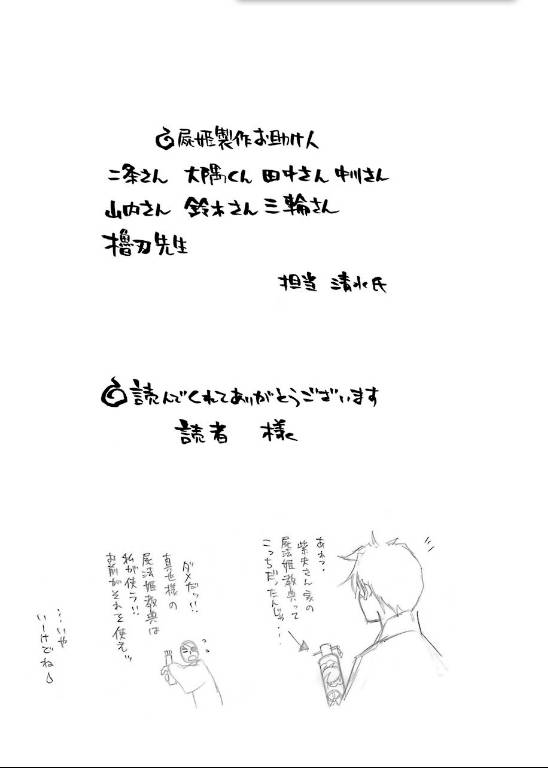 屍姫製作お助け人
二条さん 大隅くん 田中さん 中川さん
山内さん 鈴木さん 三輪さん
櫓刃先生
担当 清水氏
読んでくれてありがとうございます
読者 様
あれっ、
柴夫さん家の
屍法姫教典って
こっちだったんじゃ…
ダメだッ!!
真也様の
屍法姫教典は
私が使う!!
お前がそれを使えッ
…いや
いーけどね